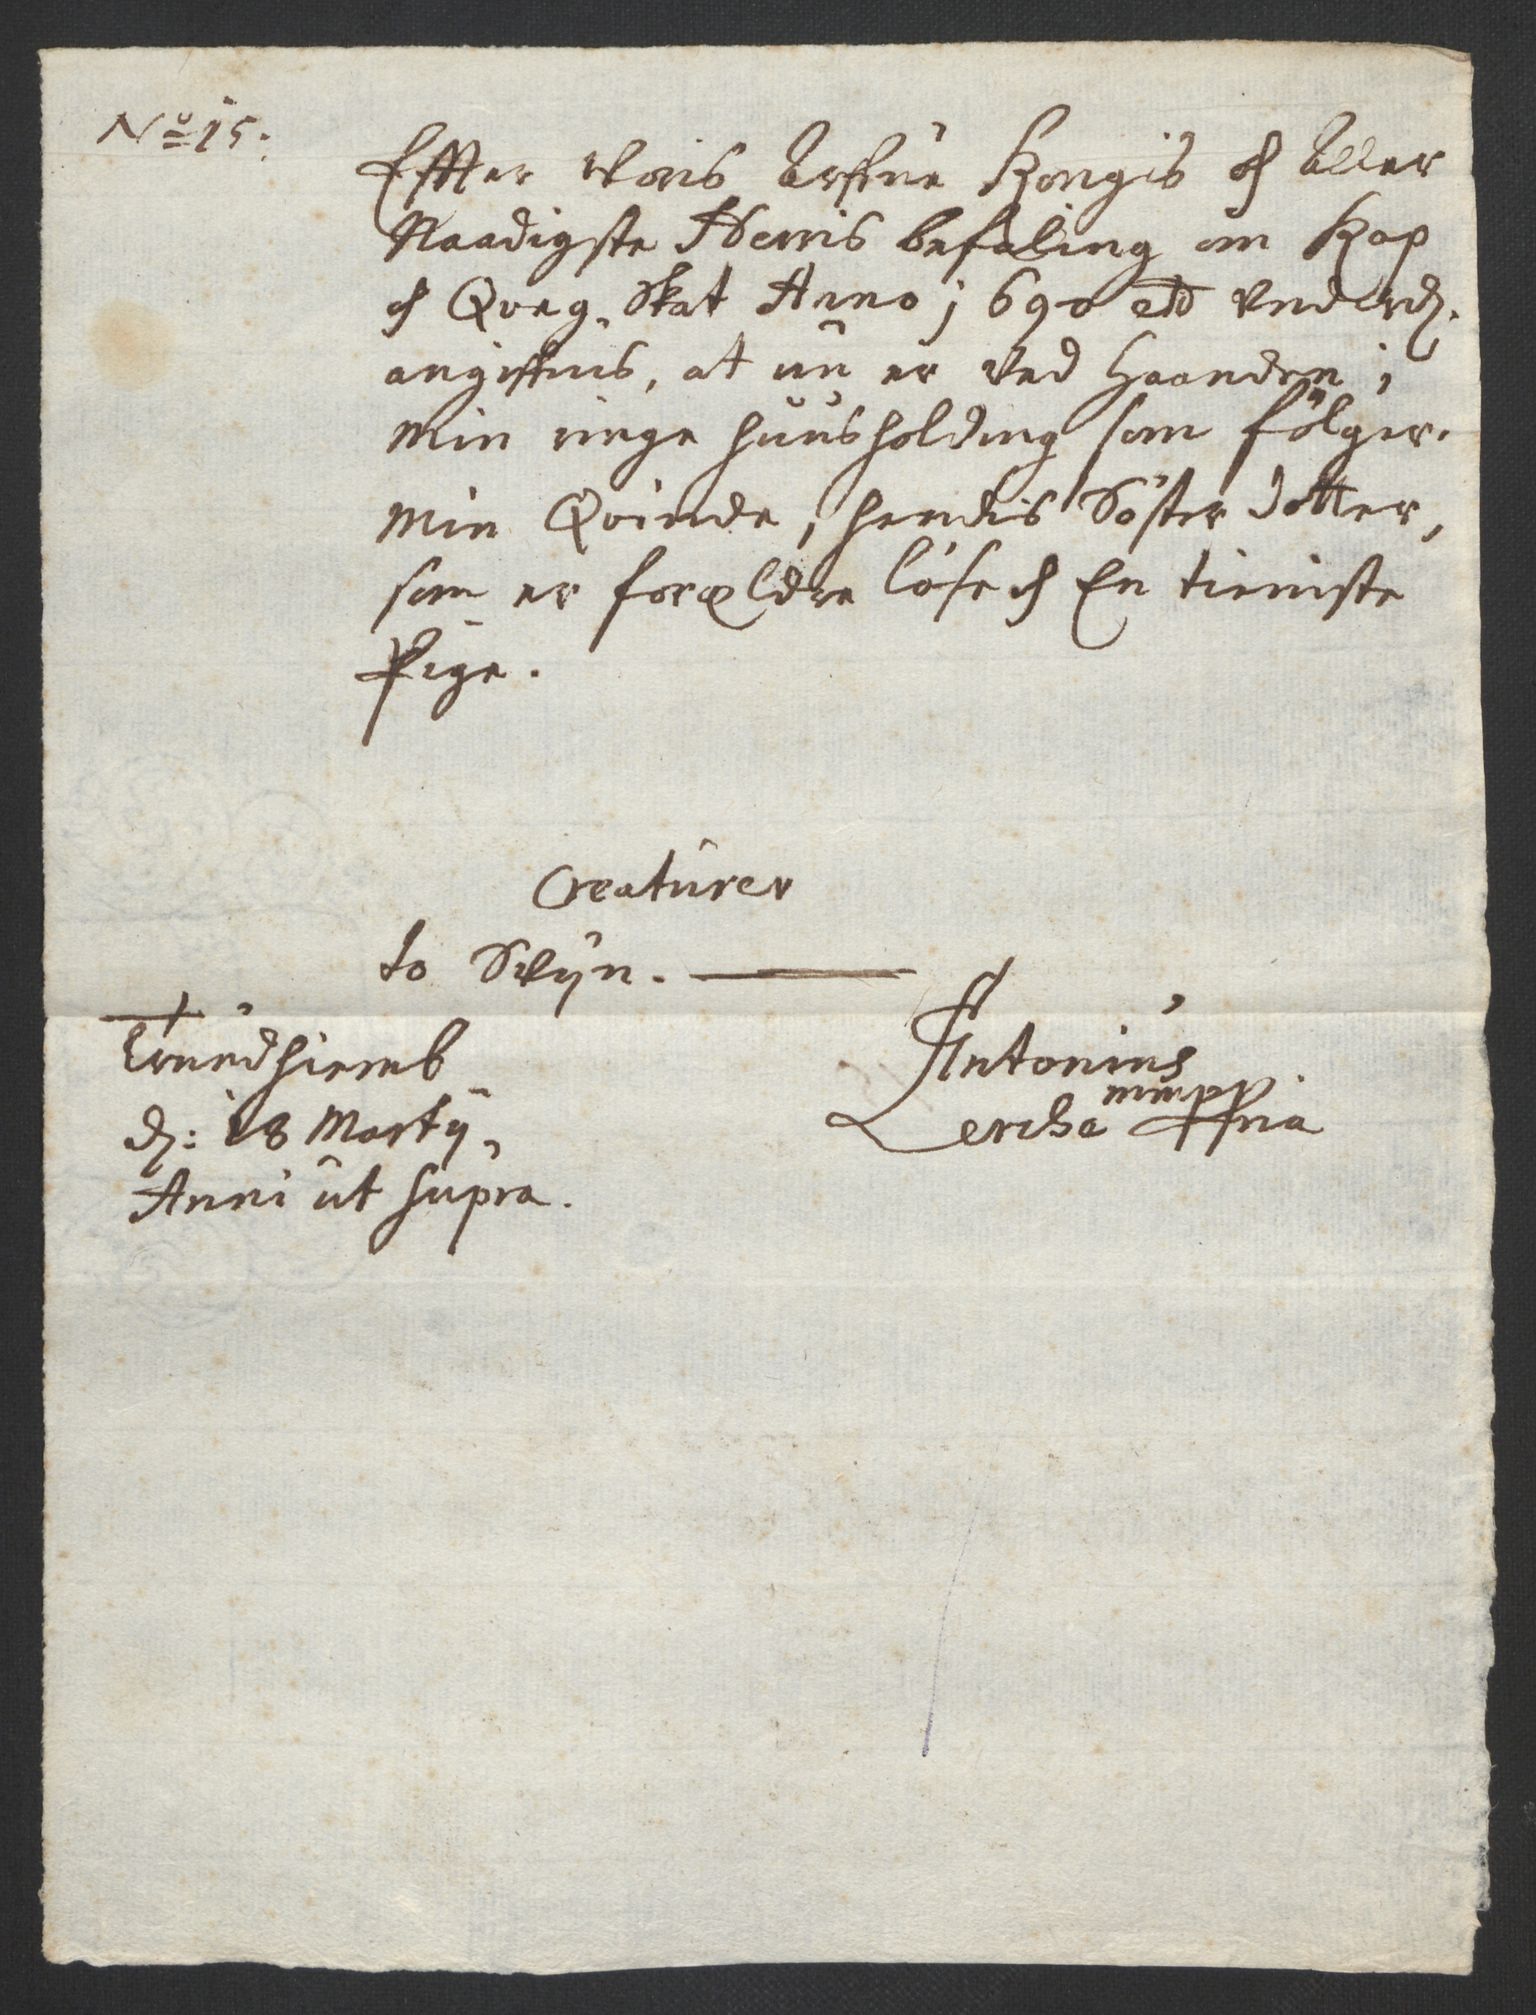 No 15:
Effter Woris Arffue Kongis och Aller
Naadigste Herris befaling om Kop
och Qveg Skat Anno 1690 etc
angiffuis, at nu er Ved Haanden i
Min ringe huusholding som fölger.
Min Qvinde, hendis Söster dotter,
som er forældre löse och En tieniste
Pige.
Creaturer
to Swÿn.
Trundhiemb
d: 18 Martÿ
Anni ut supra.
Antonius
Lerche mmpp